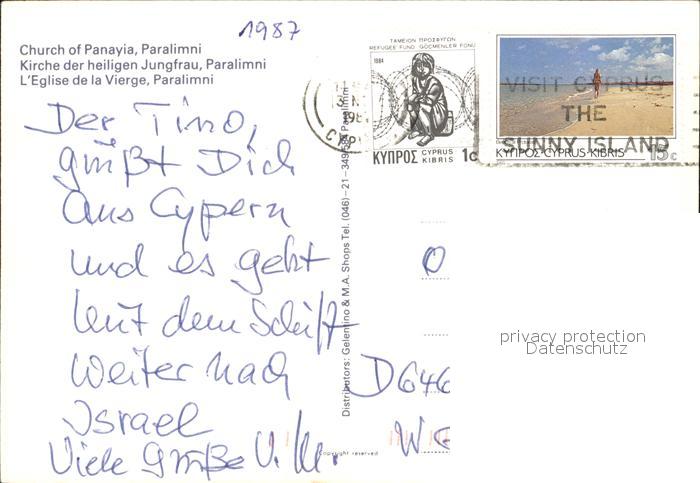 1987
Church of Panayia, Paralimni
Kirche der heiligen Jungfrau, Paralimni
L'Eglise de la Vierge, Paralimni
Der Tino,
grüßt Dich
aus Cypern
und es geht
mit dem Schiff
weiter nach
Israel
Viele Grüße
ΤΑΜΕΙΟΝ ΠΡΟΣΦΥΓΩΝ
REFUGEE FUND GÖÇMENLER FONU
1984
ΚΥΠΡΟΣ CYPRUS KIBRIS 1c
VISIT CYPRUS
THE
SUNNY ISLAND
ΚΥΠΡΟΣ·CYPRUS·KIBRIS 15c
Distributors: Gelentino & M.A. Shops Tel. (046)-21-349/584 Paralimni
D646
privacy protection
Datenschutz
Copyright reserved